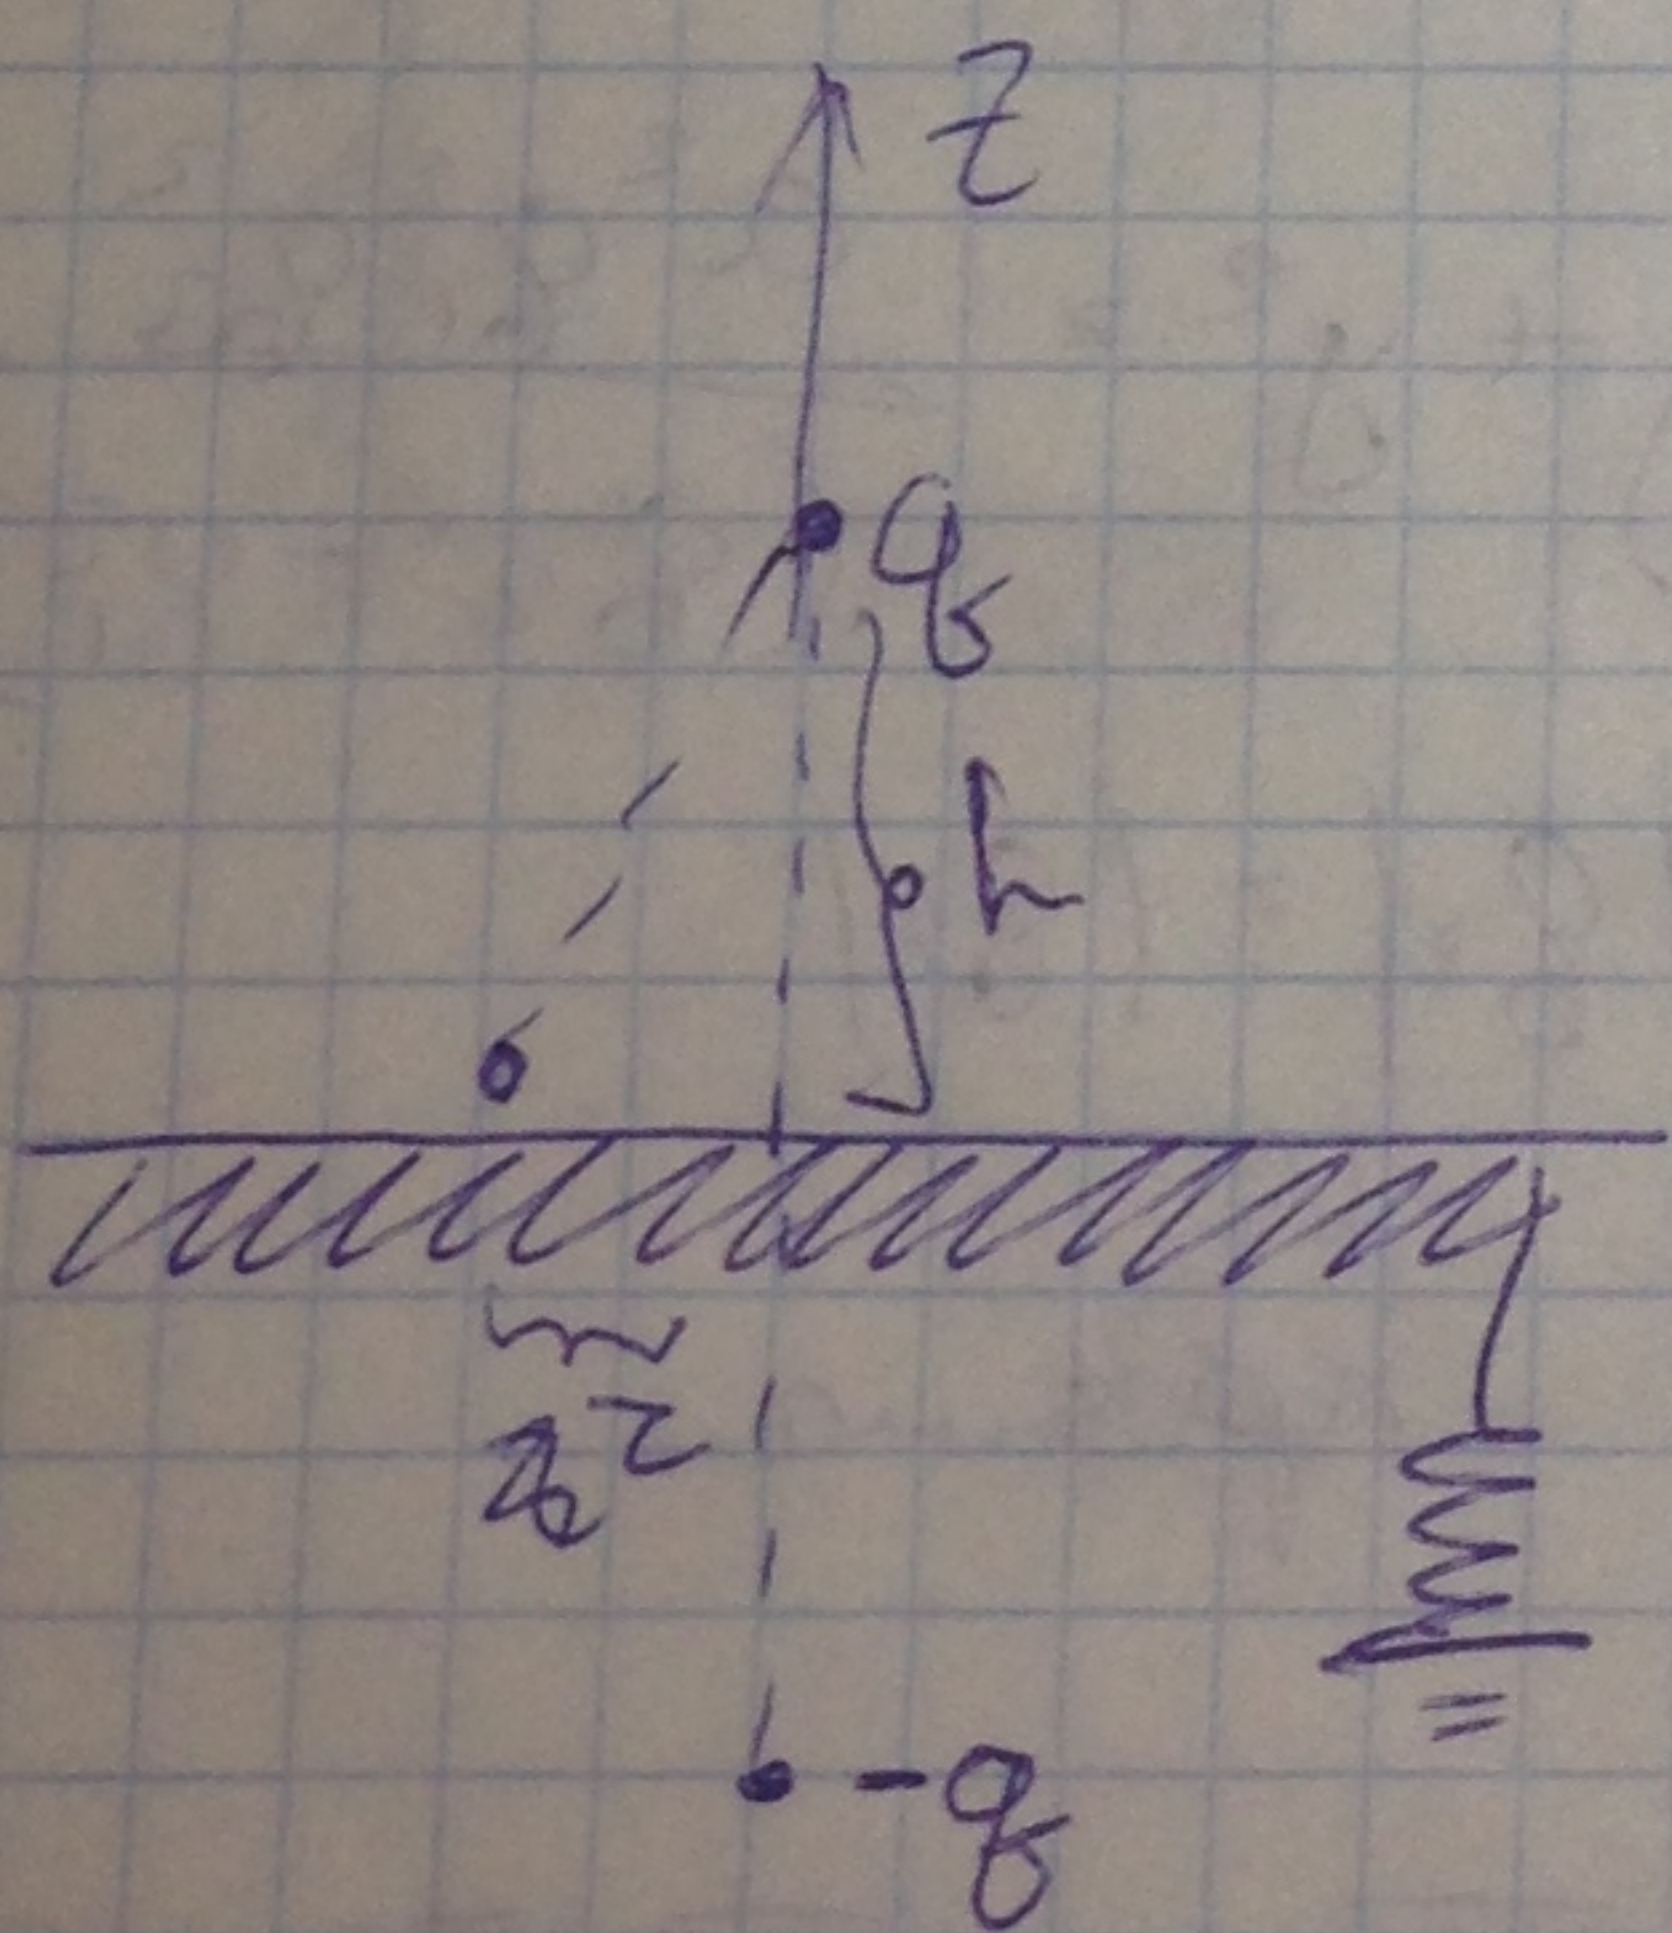 z
q
h
-q